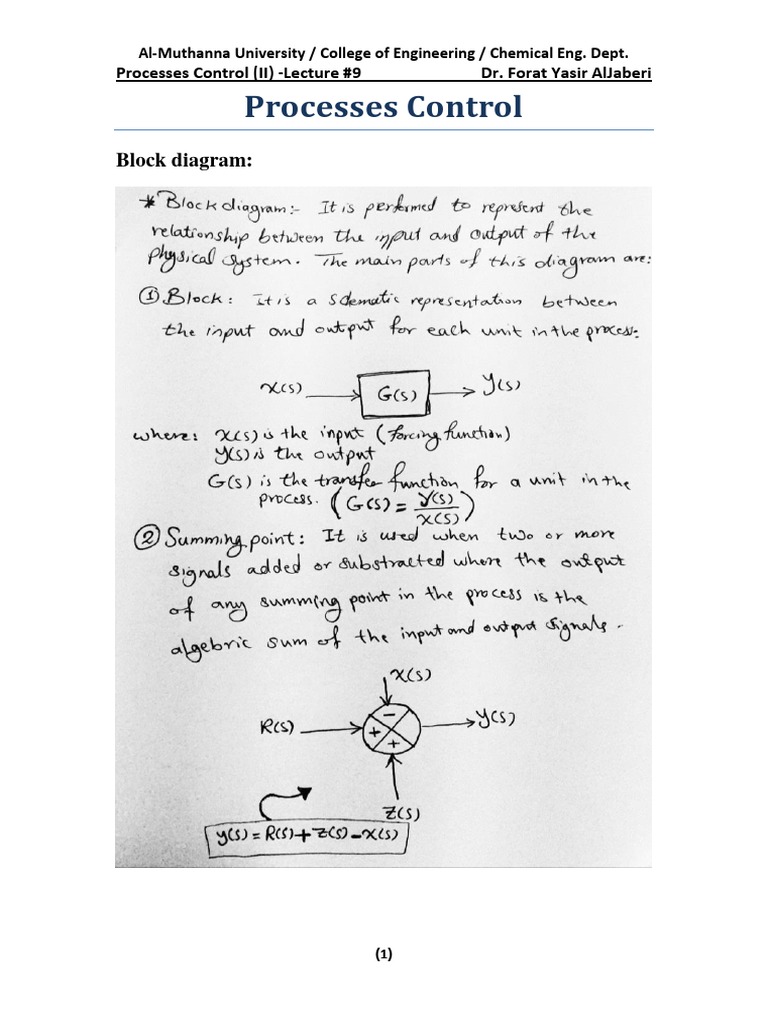 Al-Muthanna University / College of Engineering / Chemical Eng. Dept.
Processes Control (II) -Lecture #9 Dr. Forat Yasir AlJaberi
Processes Control
Block diagram:
* Block diagram:- It is performed to represent the
relationship between the input and output of the
physical system. The main parts of this diagram are:
① Block: It is a schematic representation between
the input and output for each unit in the process:
X(s) G(s) Y(s)
where: X(s) is the input (forcing function)
Y(s) is the output
G(s) is the transfer function for a unit in the
process. (G(s) = Y(s)/X(s))
② Summing point: It is used when two or more
signals added or substracted where the output
of any summing point in the process is the
algebric sum of the input and output signals.
X(s)
R(s) - + + Y(s)
Z(s)
Y(s) = R(s) + Z(s) - X(s)
(1)